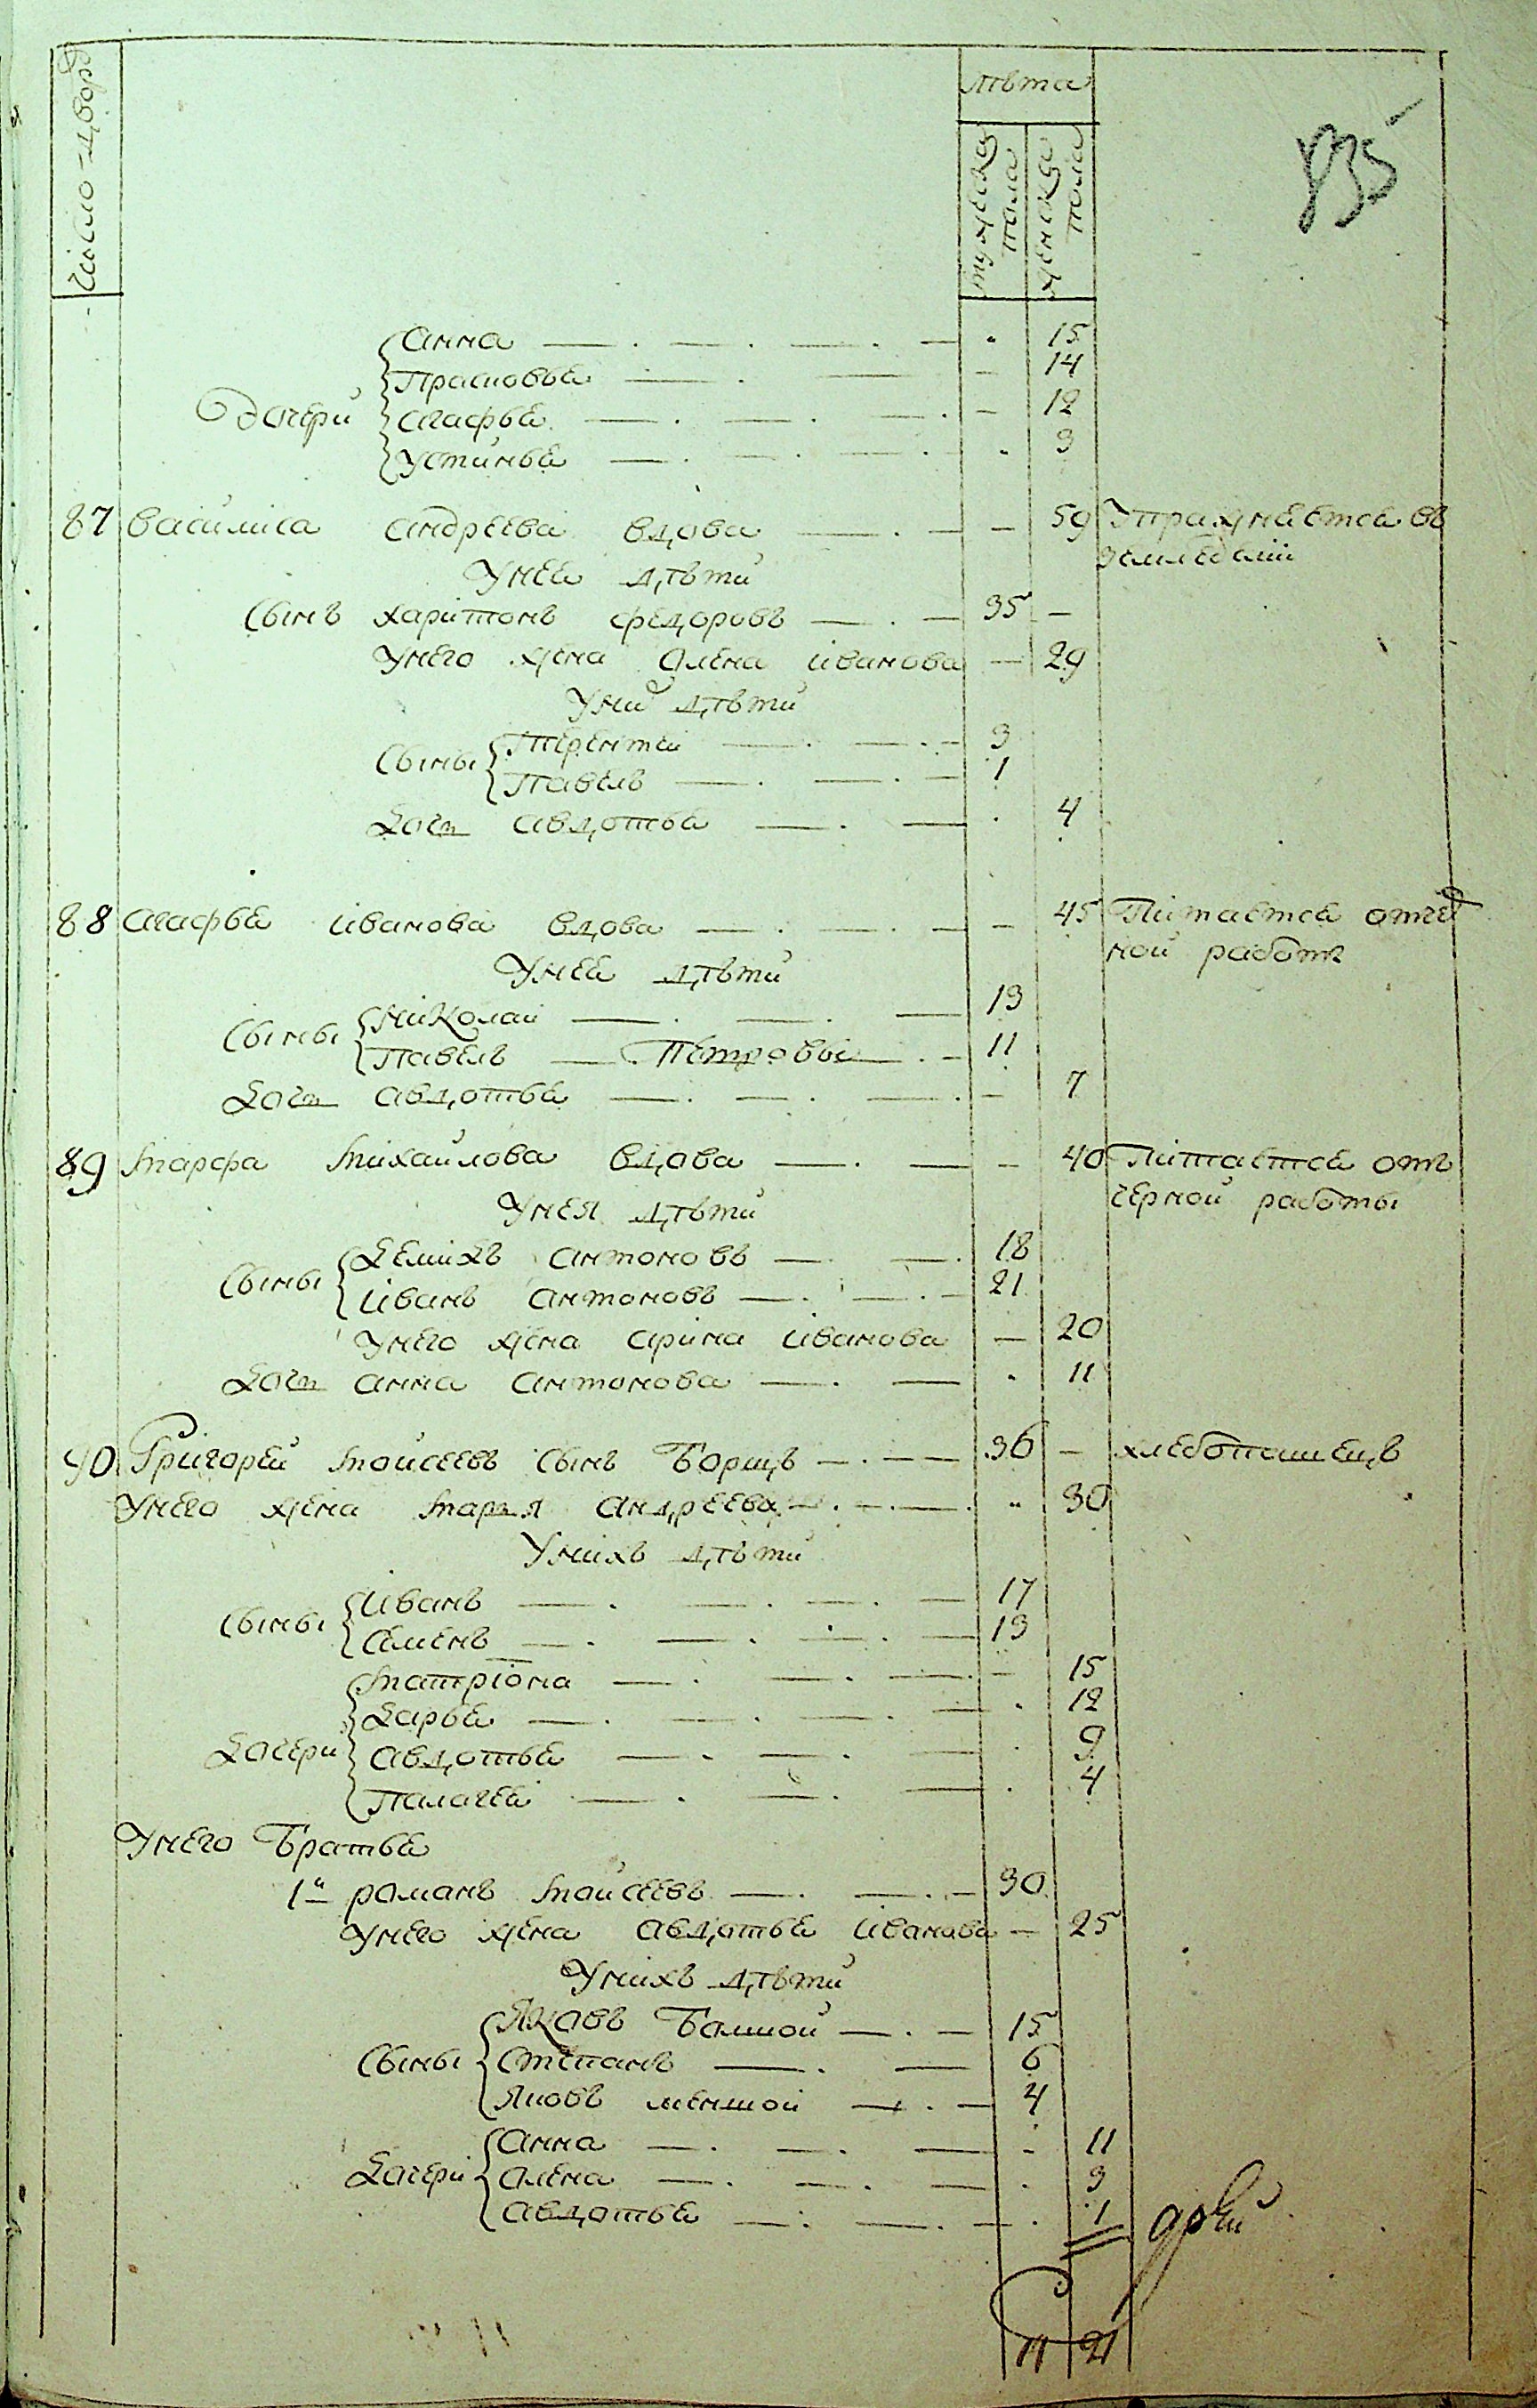 Число дворовъ
лѣта
мужеска пола
женска пола
935
Дочери
Анна — 15
Прасковья — 14
Агафья — 12
Устинья — 3
87 Василиса Андреева вдова — 59 Упражняется въ
земледелии
У нея дѣти
Сынъ Харитонъ Федоровъ — 35 —
У него жена Алена Иванова — 29
У ни дѣти
Сыны
Терентей — 3
Павелъ — 1
Дочь Авдотья — 4
88 Агафья Иванова вдова — 45 Питается от чер
ной работы
У нея дѣти
Сыны
Николай — 13
Павелъ — Петровы — 11
Дочь Авдотья — 7
89 Марфа Михайлова вдова — 40 Питается отъ
черной работы
У нея дѣти
Сыны
Демидъ Антоновъ — 18
Иванъ Антоновъ — 21
У него жена Арина Иванова — 20
Дочь Анна Антонова — 11
90 Григорей Моисеевъ сынъ Борщъ — 36 — хлебопашецъ
У него жена Марья Андреева — 30
У нихъ дѣти
Сыны
Иванъ — 17
Семенъ — 13
Дочери
Матрiона — 15
Дарья — 12
Авдотья — 9
Палагея — 4
У него Братья
1й Романъ Моисеевъ — 30
У него жена Авдотья Иванова — 25
У нихъ дѣти
Сыны
Яковъ Болшой — 15
Степанъ — 6
Яковъ меншой — 4
Дочери
Анна — 11
Алена — 3
Авдотья — 1
17 21